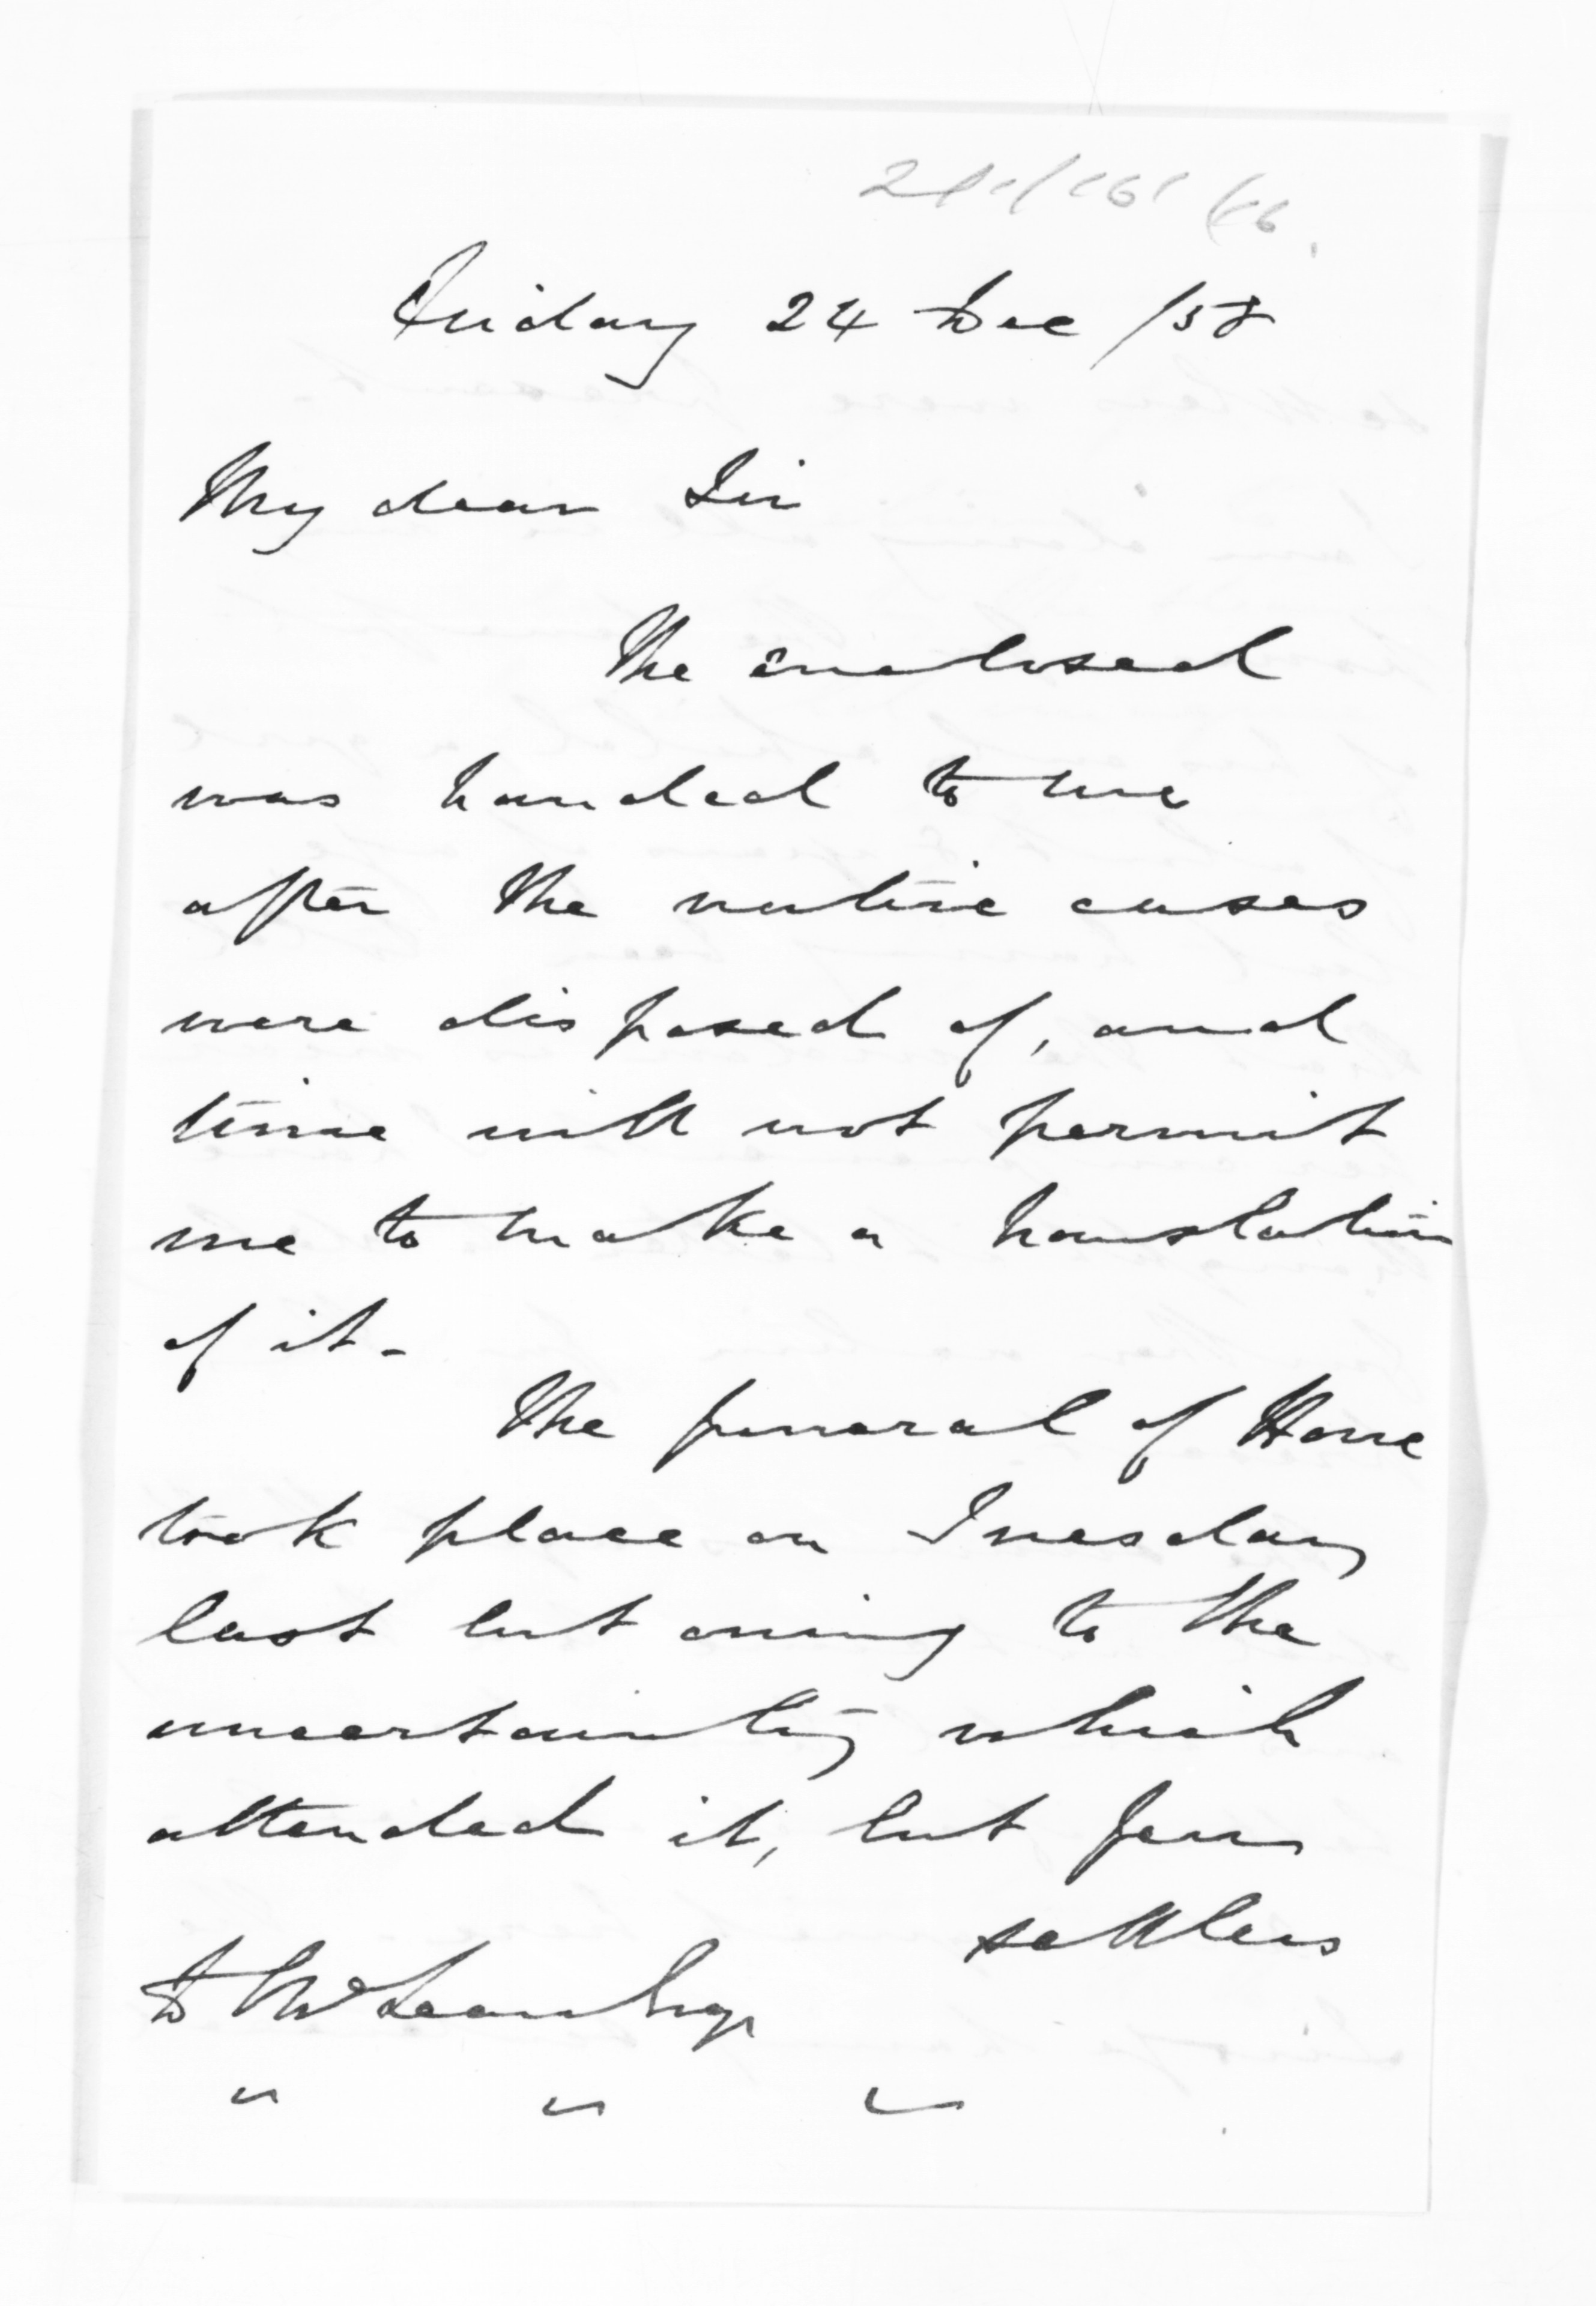 Friday 24 Dec /58
My dear Sir
The enclosed
was handed to me
after the native cases
were disposed of, and
time will not permit
me to make a translation
of it -
The funeral of Hone
took place on Tuesday
last but owing to the
uncertainty which
attended it, but few
settlers
D McLean Esqr
" " "